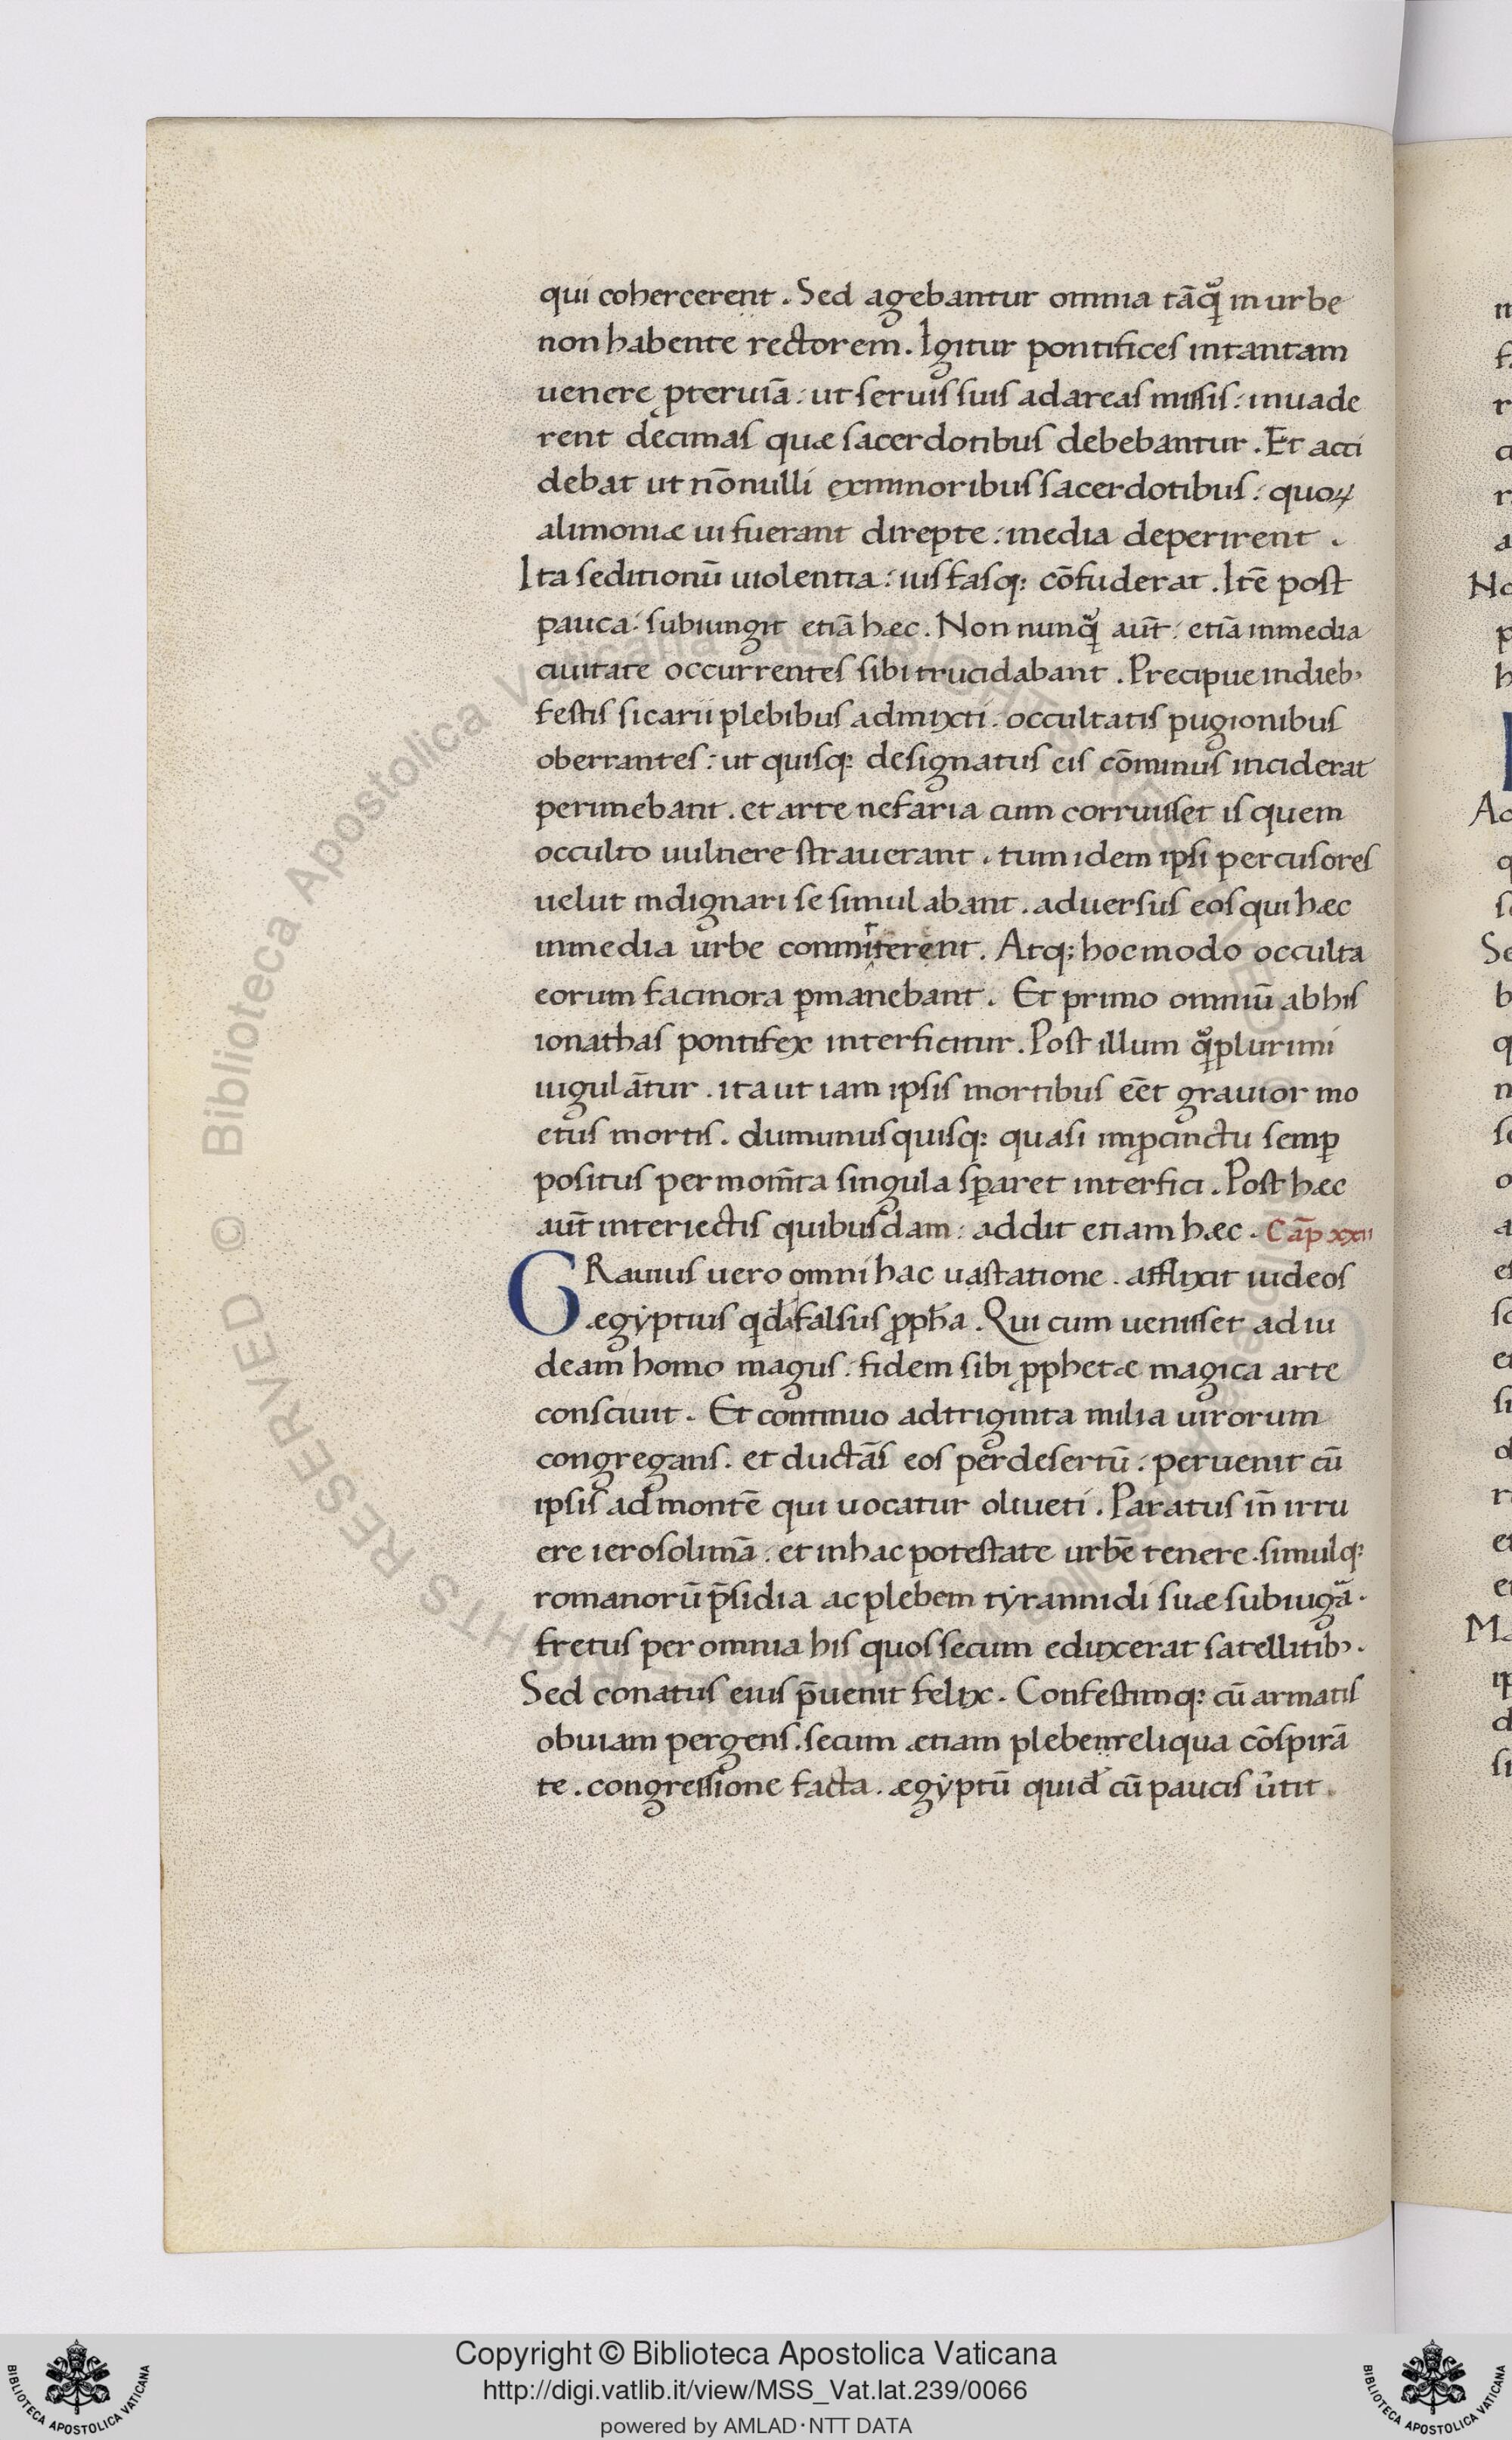 qui cohercerent . Sed agebantur omnia tāq̄ in urbe
non habente rectorem . Igitur pontifices intantam
uenere ꝑteruiā : ut seruis suis ad areas missis : inuade
rent decimas quæ sacerdotibus debebantur . Et acci
debat ut nōnulli ex minoribus sacerdotibus : quoꝝ
alimoniæ ui fuerant direpte : media deperirent .
Ita seditionū uiolentia : ius fasq; cōfuderat . Itē post
pauca : subiungit etiā hæc . Non nunq̄ aut̄ : etiā inmedia
ciuitate occurrentes sibi trucidabant . Precipue indieb⁹
festis sicarii plebibus admixti . occultatis pugionibus
oberrantes : ut quisq; designatus eis cōminus inciderat
perimebant . et arte nefaria cum corruisset is quem
occulto uulnere strauerant . tum idem ipsi percusores
uelut indignari se simulabant . aduersus eos qui hæc
inmedia urbe conmitterent . Atq; hoc modo occulta
eorum facinora ꝑmanebant . Et primo omniū ab his
ionathas pontifex interficitur . Post illum q̄plurimi
iugulāntur . ita ut iam ipsis mortibus eēt grauior mo
etus mortis . dum unusquisq; quasi in ꝓcinctu semꝑ
positus per mom̄ta singula sꝑaret interfici . Post hæc
aut̄ interiectis quibusdam : addit etiam hæc . Cāp xxii
GRauius uero omni hac uastatione . afflixit iudeos
ægẏptius qdā falsus ꝓph̄a . Qui cum uenisset ad iu
deam homo magus : fidem sibi ꝓphetæ magica arte
consciuit . Et continuo ad triginta milia uirorum
congregans . et ductās eos per desertū : peruenit cū
ipsis ad montē qui uocatur oliueti . Paratus in̄ irru
ere ierosolimā : et in hac potestate urbē tenere . simulq;
romanorū p̄sidia ac plebem tẏrannidi suæ subiugā .
fretus per omnia his quos secum eduxerat satellitib⁹ .
Sed conatus eius p̄uenit felix . Confestimq; cū armatis
obuiam pergens . secum ætiam plebem reliqua cōspirā
te . congressione facta . ægẏptū quid̄ cū paucis ūtit .
Copyright © Biblioteca Apostolica Vaticana
http://digi.vatlib.it/view/MSS_Vat.lat.239/0066
powered by AMLAD·NTT DATA